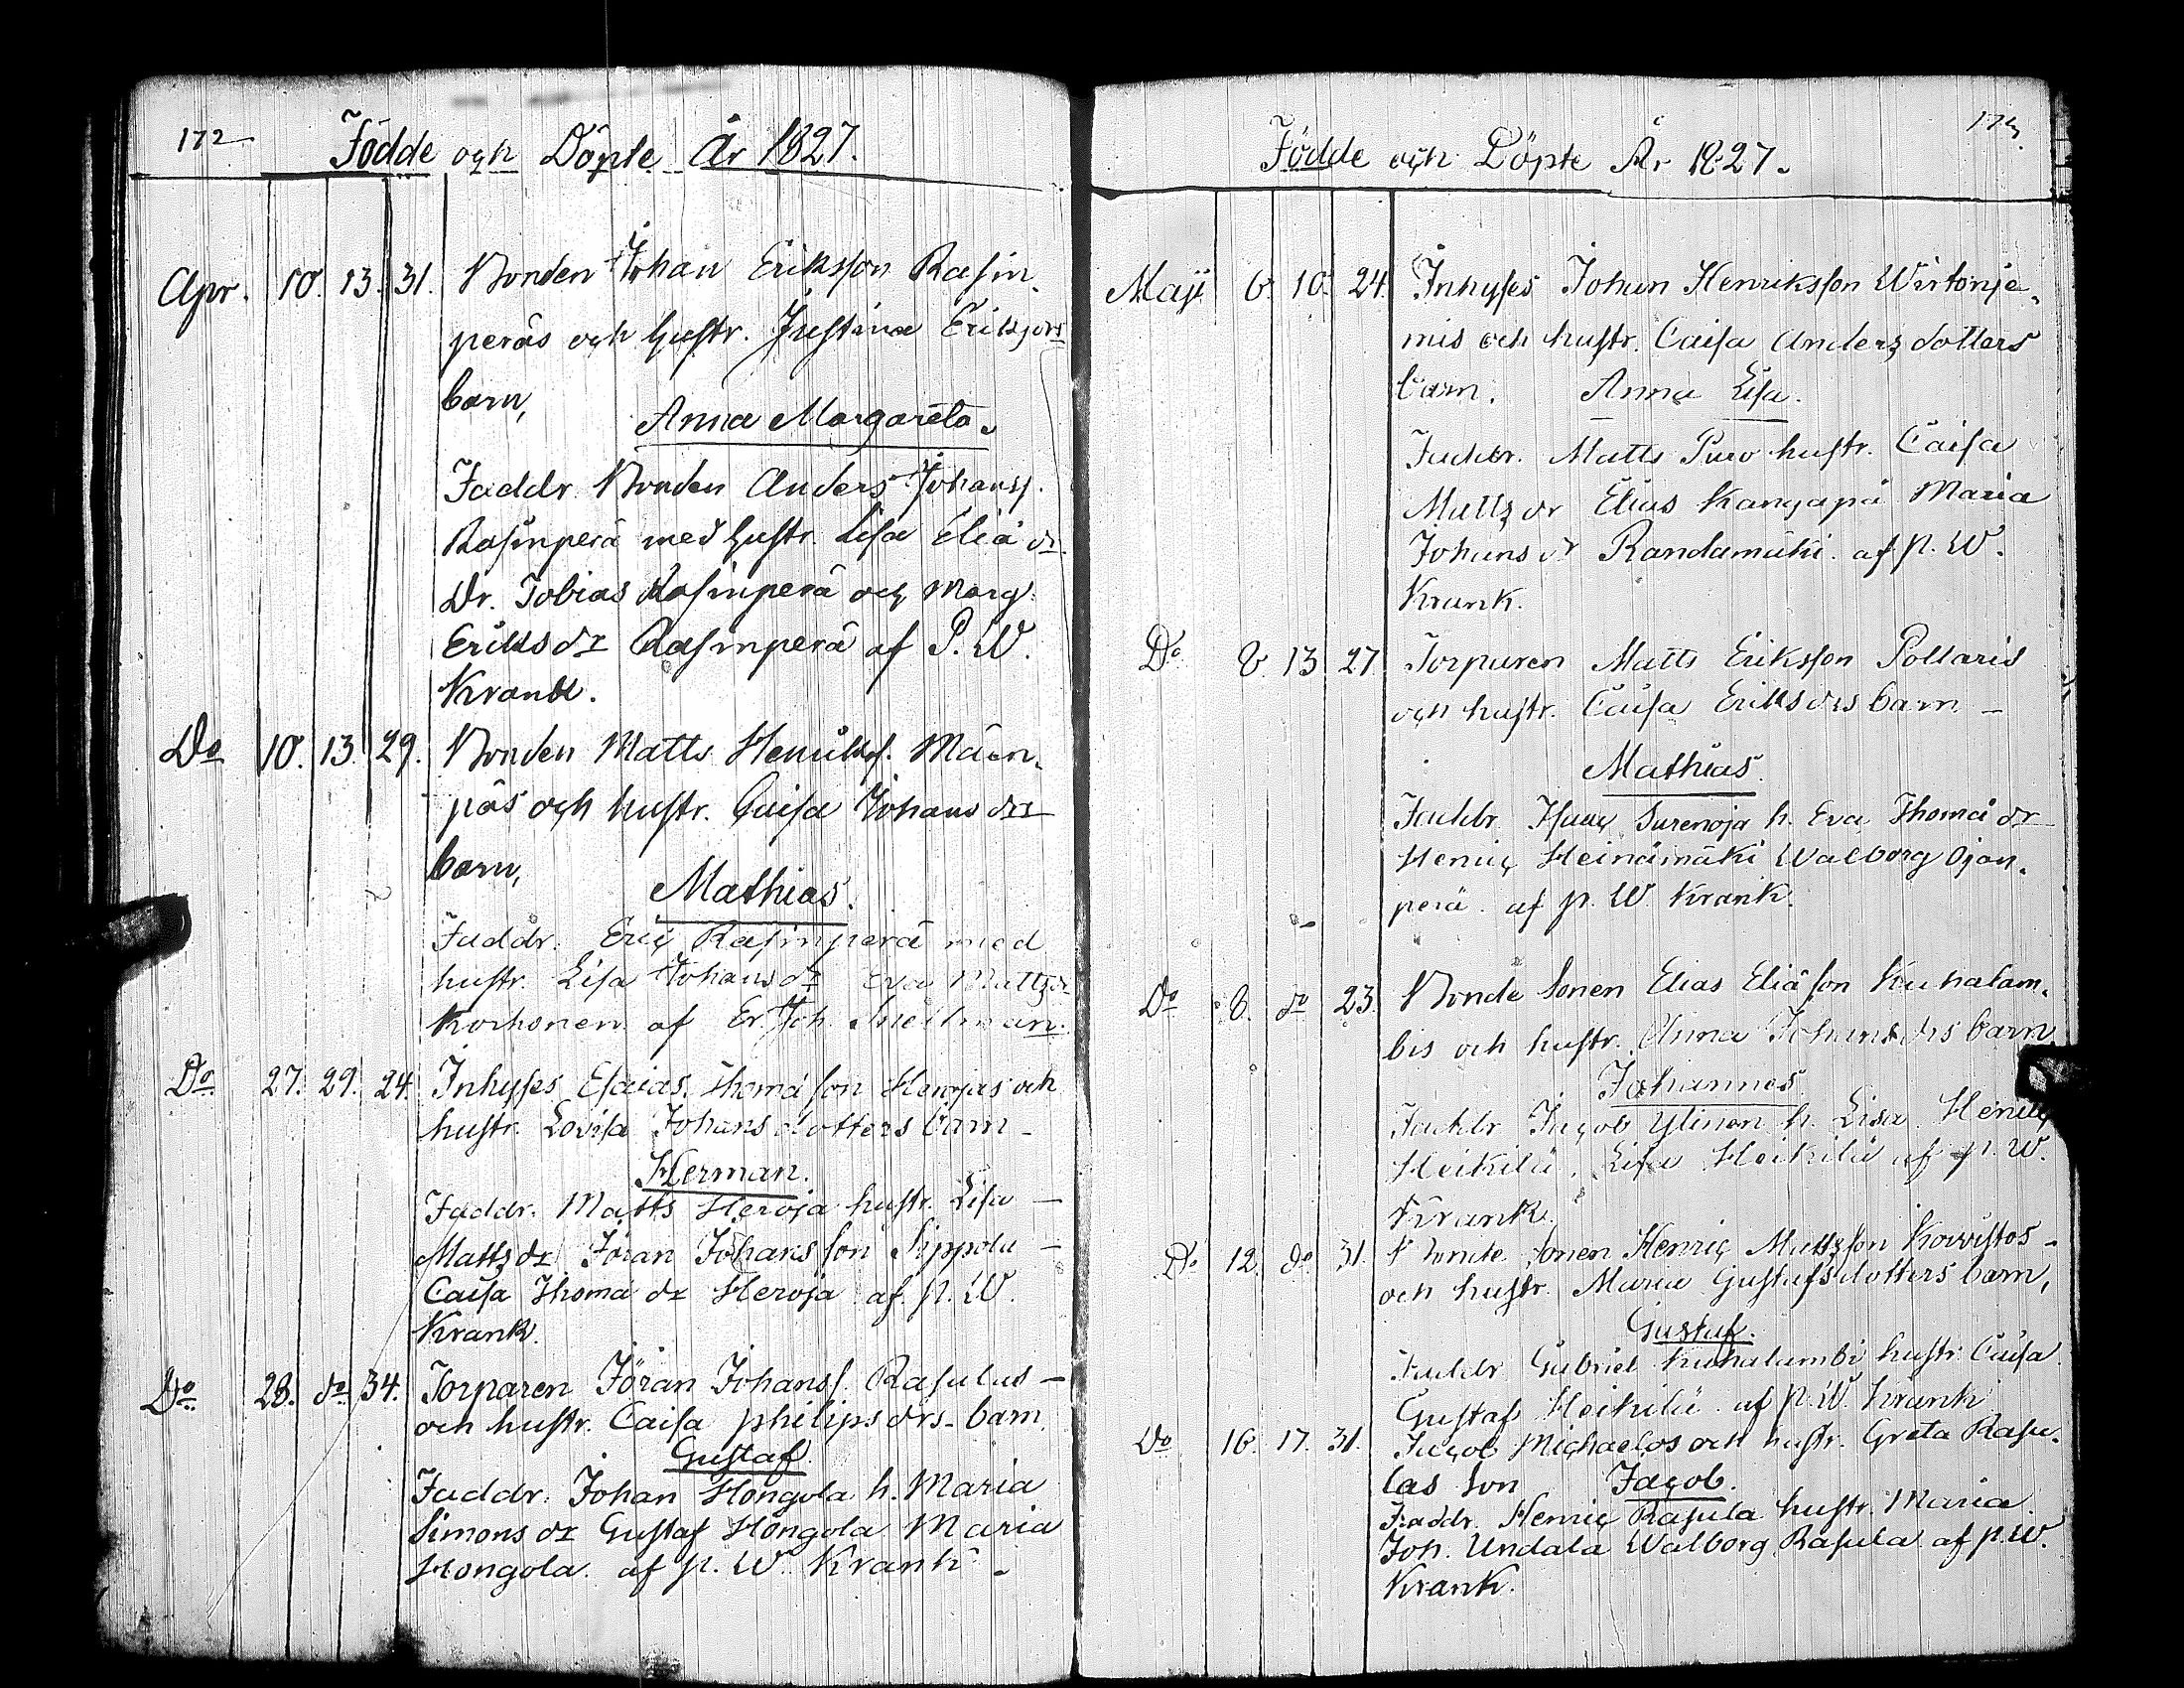 172
Födde och Döpte År 1827.
Apr. 10. 13. 31. Bonden Johan Eriksson Rasin-
peräs och hustr. Justina Eriksdrs
barn,
Anna Margareta.
Faddr. Bonden Anders Johanss.
Rasinperä med hustr. Lisa Eliä dr.
Dr. Tobias Rasinperä och Marg.
Eriks dr Rasinperä af P. W.
Krank.
Do 10. 13. 29. Bonden Matts Henrikss. Mäen-
päs och hustr. Caisa Johans drs
barn,
Mathias.
Faddr. Eric Rasinperä med
hustr. Lisa Johans dr Eva Matts dr
Korhonen af Er. Joh. Snellman.
Do 27. 29. 24. Inhyses Esaias Thomä son Herojas och
hustr. Lovisa Johans dotters barn -
Herman.
Faddr. Matts Heroja hustr. Lisa -
Matts dr Jöran Johans son Sippola -
Caisa Thomä dr Heroja af p. W.
Krank.
Do 28. do 34. Torparen Jöran Johanss. Rasulas -
och hustr. Caisa philips drs barn.
Gustaf.
Faddr. Johan Hongola h. Maria
Simons dr Gustaf Hongola Maria
Hongola. af p. W. Krank -
173
Födde och Döpte År 1827.
Maji 6. 10. 24. Inhyses Johan Henriksson Wirtonje-
mis och hustr. Caisa Anders dotters
barn. Anna Lisa.
Faddr. Matts Puro hustr. Caisa
Matts dr Elias Kangapä Maria
Johans dr Randamäki. af p. W.
Krank.
Do 8. 13 27 Torparen Matts Eriksson Pollaris
och hustr. Caisa Eriks drs barn -
Mathias.
Faddr. Isaac Surenoja h. Eva Thomä dr
Henric Heinämäki Walborg Ojan-
perä. af p. W. Krank.
Do 8. do 23. Bonde Sonen Elias Eliä son Kuhalam-
bis och hustr. Anna Johans drs barn
Johannes.
Faddr Jacob Ylinen h. Lisa Henric
Heikilä. Lisa Heikilä af p. W.
Krank.
Do 12. do 31. Bonde Sonen Henric Mattsson Koivistos -
och hustr. Maria Gustafs dotters barn,
Gustaf.
Faddr Gabriel Kuhalambi hustr. Caisa
Gustaf Heikilä. af p. W. Krank
Do 16. 17. 31. Jacob Michaelos och hustr. Greta Rasu-
las Son Jacob.
Faddr. Henric Rasula hustr. Maria
Joh. Undala Walborg Rasula af p. W.
Krank.